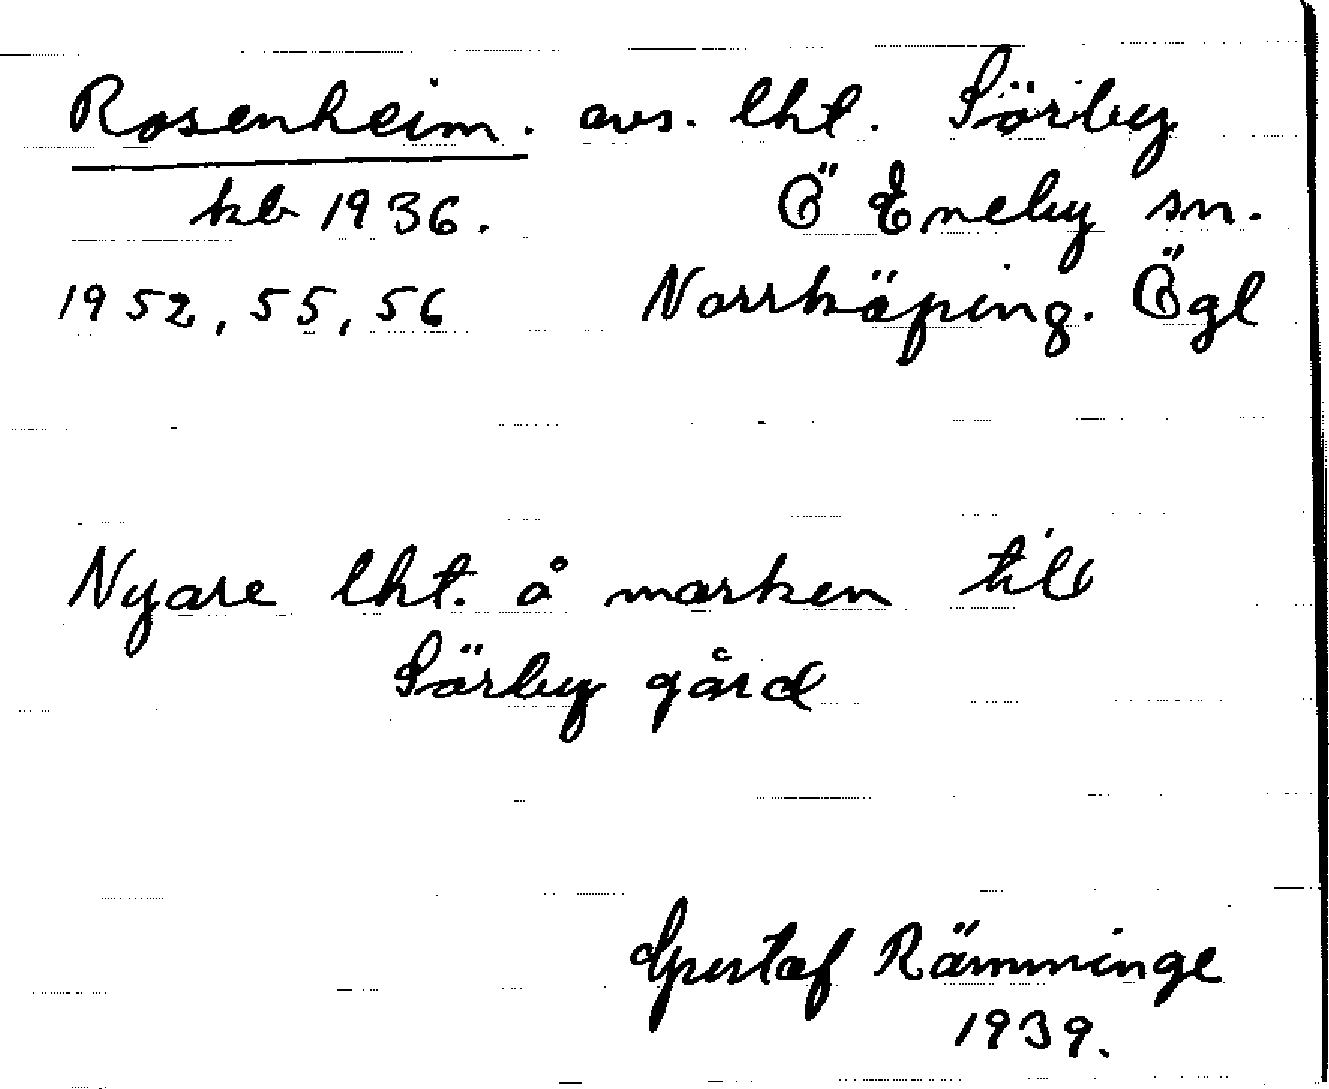 Rosenheim. avs. lht. Sörby
kb 1936. Ö Eneby sn.
1952, 55, 56 Norrköping. Ögl
Nyare lht. å marken till
Sörby gård
Gustaf Rämminge
1939.